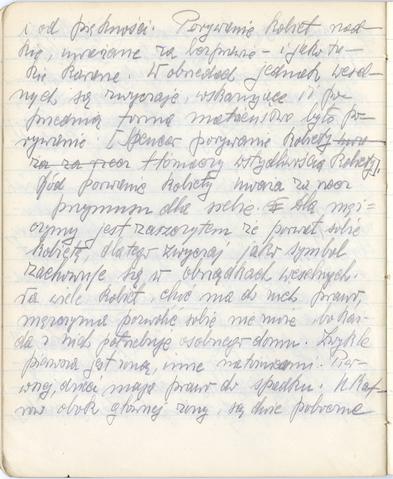 i od piękności. Porywanie kobiet rzad-
kie, uważane za bezprawie – i jako ta-
kie karane. W obrzędach jednak wesel-
nych są zwyczaje, wskazujące iż po-
przednią formą małżeństwa było po-
rywanie. [Spencer porywanie kobiety
za za wzor tłomaczy wstydliwością kobiety].
Gdyż porwanie kobiety uważa za
przymus dla siebie. Dla męż-
czyzny jest zaszczytem że porwał sobie
kobietę, dlatego zwyczaj jako symbol
zachowuje się w obrządkach weselnych.
Na wiele kobiet, choć ma do nich prawo,
mężczyzna pozwolić sobie nie może, bo każ-
da z nich potrzebuje osobnego domu. Zwykle
pierwsza jest żoną, inne nałożnicami. Pier-
wszej, dzieci mają prawo do spadku. U Kaf-
rów obok głównej żony, są dwie poboczne